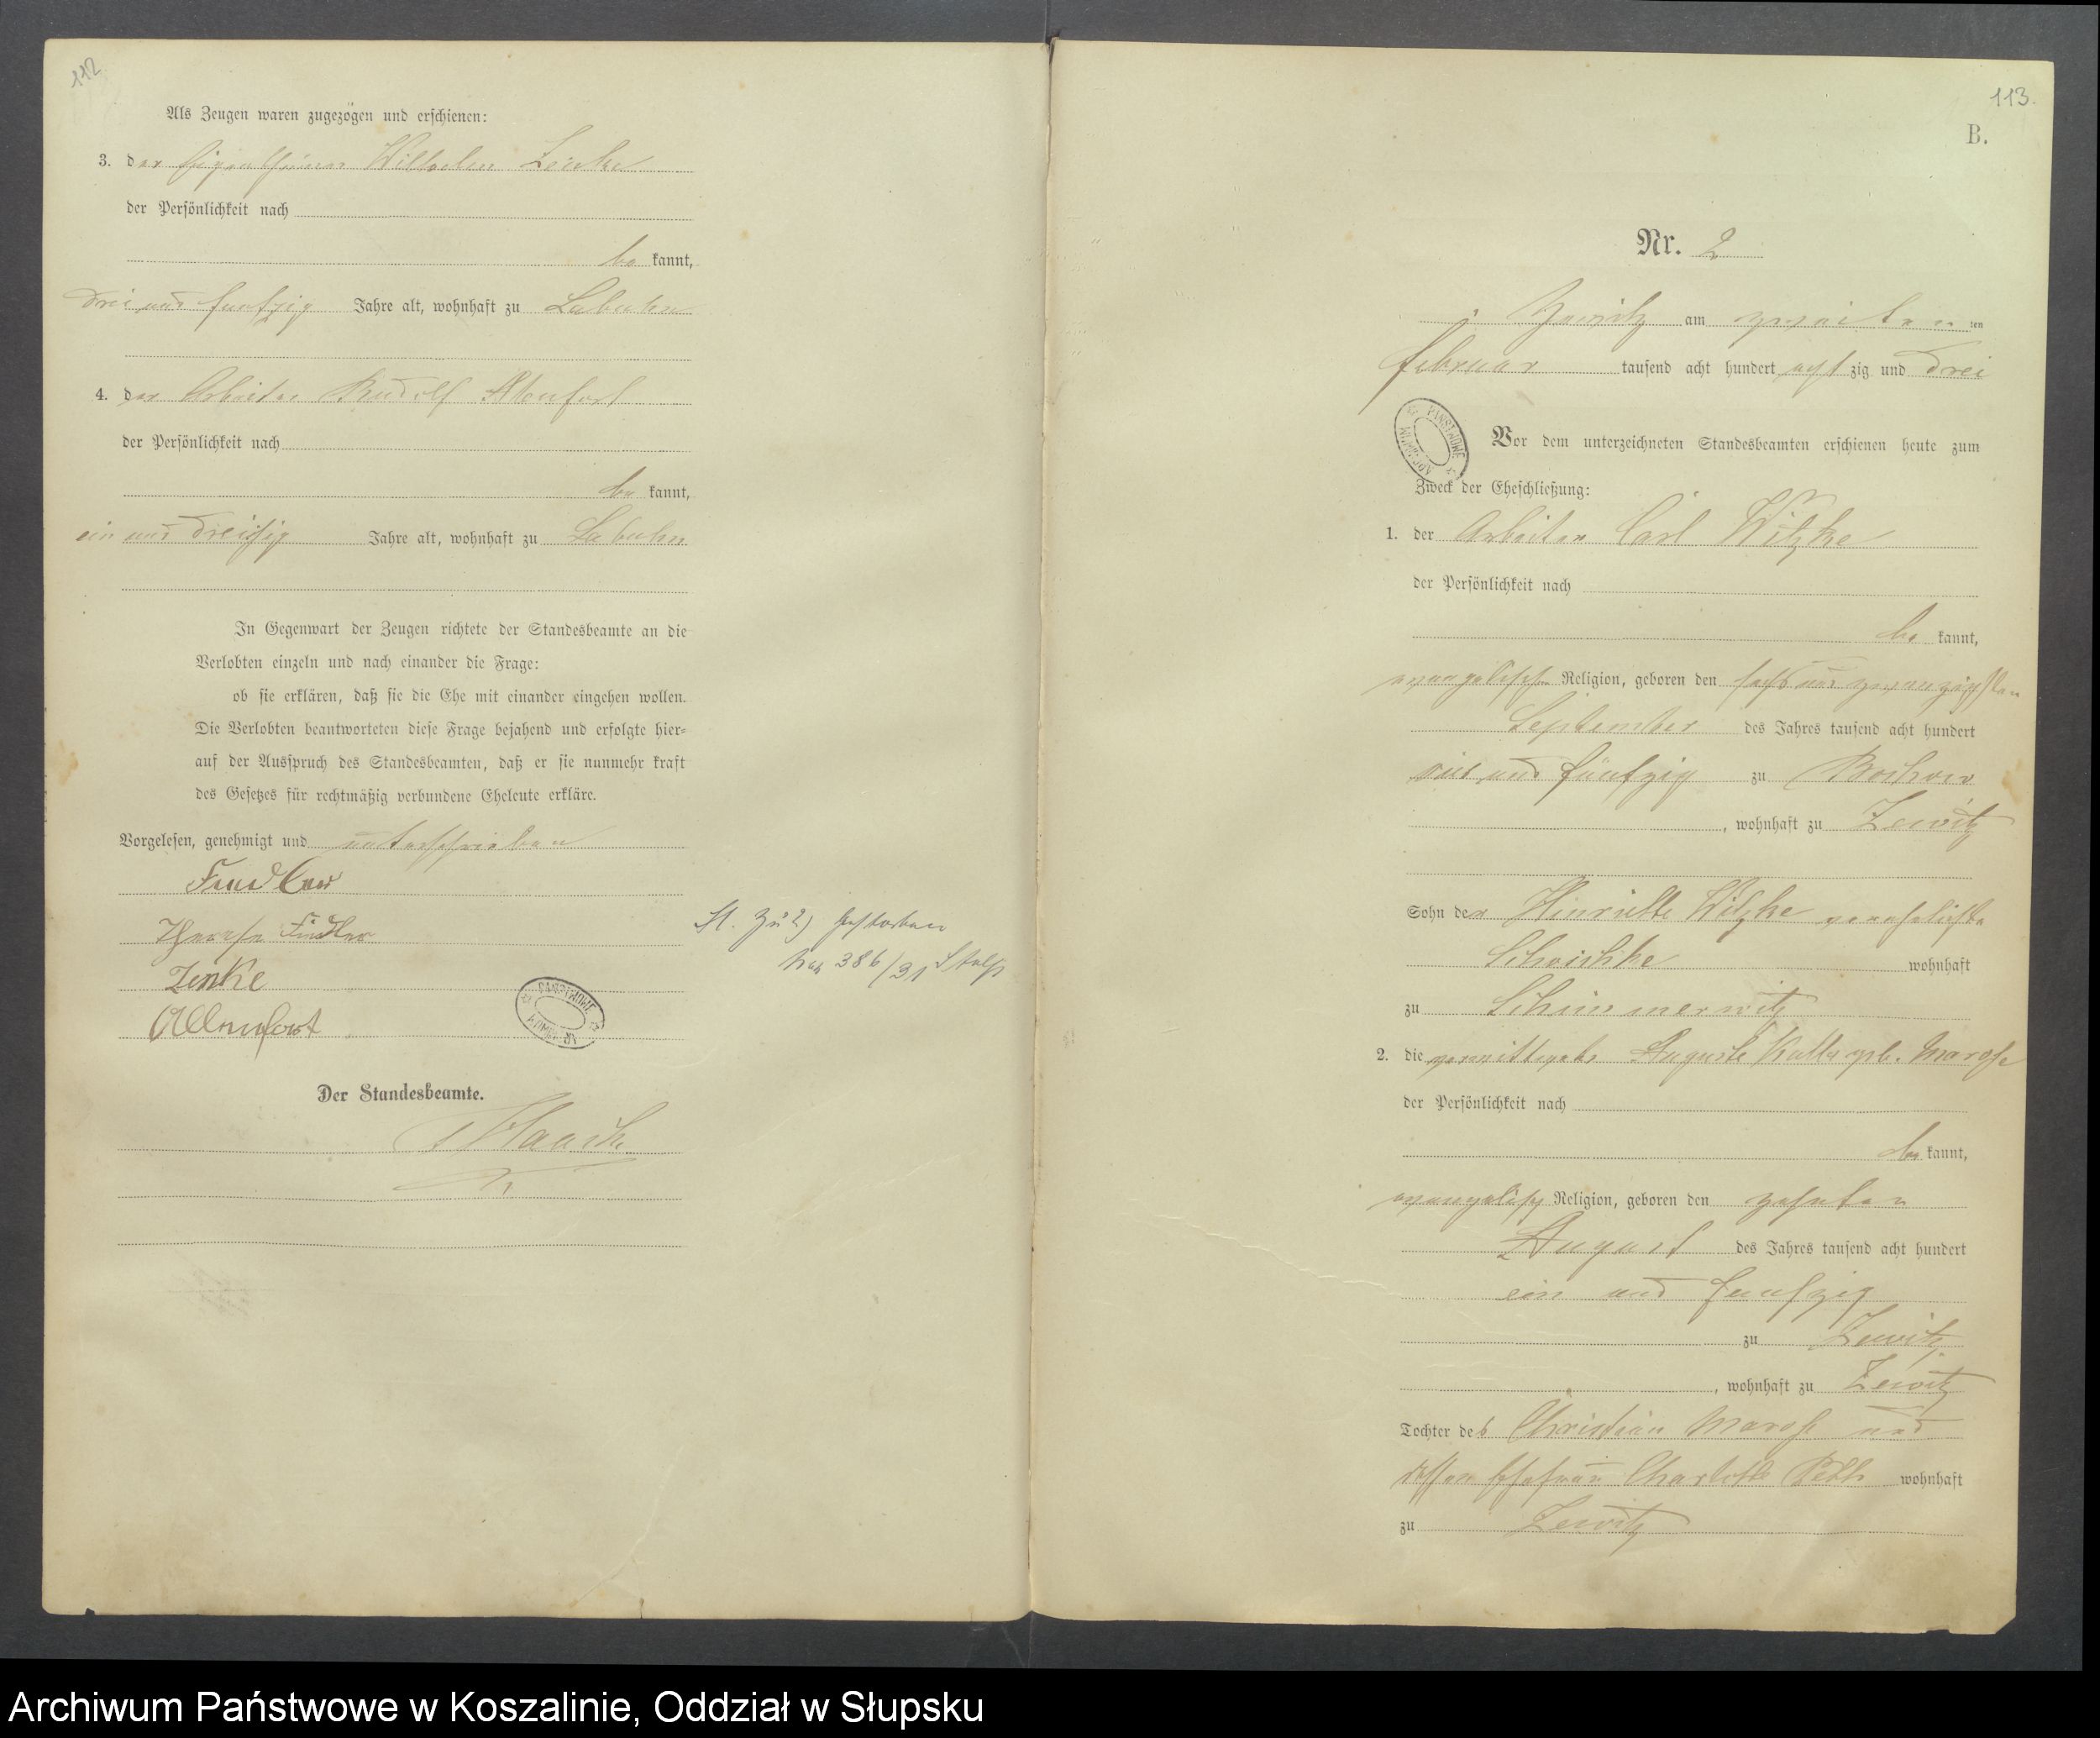 112
Als Zeugen waren zugezogen und erschienen:
3. der Eigenthümer Wilhelm Zenke
der Persönlichkeit nach
be kannt,
drei und funfzig Jahre alt, wohnhaft zu Labuhn
4. der Arbeiter Rudolf
der Persönlichkeit nach
be kannt,
ein und dreißig Jahre alt, wohnhaft zu Labuhn
In Gegenwart der Zeugen richtete der Standesbeamte an die
Verlobten einzeln und nach einander die Frage:
ob sie erklären, daß sie die Ehe mit einander eingehen wollen.
Die Verlobten beantworteten diese Frage bejahend und erfolgte hier=
auf der Ausspruch des Standesbeamten, daß er sie nunmehr kraft
des Gesetzes für rechtmäßig verbundene Eheleute erkläre.
Vorgelesen, genehmigt und unterschrieben
Therese Fiedler
Zenke
Allenfort
St. zu 2) gestorben
386/31 Stolp
Der Standesbeamte.
113.
B.
Nr. 2
Zewitz am zweiten ten
Februar tausend acht hundert acht zig und drei
Vor dem unterzeichneten Standesbeamten erschienen heute zum
Zweck der Eheschließung:
1. der Arbeiter Carl Witzke
der Persönlichkeit nach
be kannt,
evangelischer Religion, geboren den sechs und zwanzigsten
September des Jahres tausend acht hundert
und fünfzig zu Roschow
, wohnhaft zu Zewitz
Sohn der Henriette Witzke verehelichte
wohnhaft
zu Schimmerwitz
2. die verwittwete Auguste geb.
der Persönlichkeit nach
be kannt,
evangelisch Religion, geboren den zehnten
August des Jahres tausend acht hundert
ein und funfzig
zu Zewitz
, wohnhaft zu Zewitz
Tochter des Christian und
dessen Ehefrau Charlotte wohnhaft
zu Zewitz
Archiwum Państwowe w Koszalinie, Oddział w Słupsku